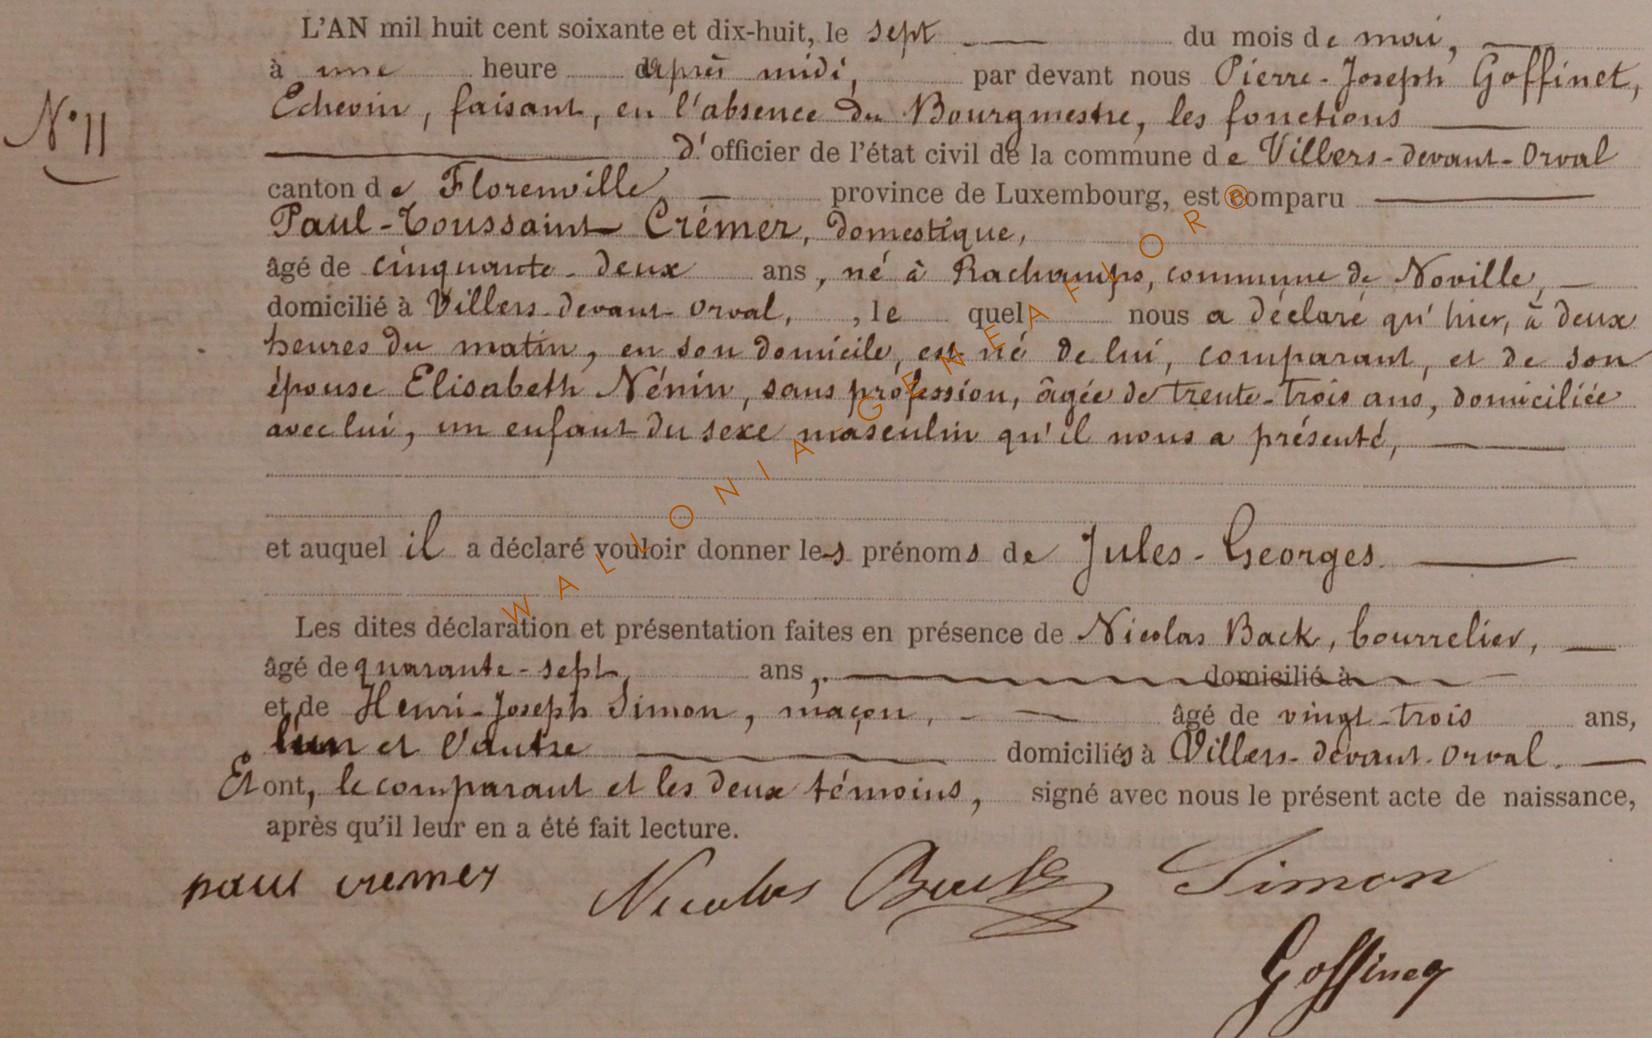 L'AN mil huit cent soixante et dix-huit, le sept du mois de mai,
à une heure après midi, par devant nous Pierre-Joseph Goffinet,
Echevin, faisant, en l'absence du Bourgmestre, les fonctions
N° 11
d'officier de l'état civil de la commune de Villers-devant-Orval
canton de Florenville province de Luxembourg, est comparu
Paul-Toussaint Crémer, domestique,
âgé de cinquante-deux ans, né à Rachamps, commune de Noville,
domicilié à Villers-devant-Orval, , le quel nous a déclaré qu'hier, à deux
heures du matin, en son domicile, est né de lui, comparant, et de son
épouse Elisabeth Nénin, sans profession, âgée de trente-trois ans, domiciliée
avec lui, un enfant du sexe masculin qu'il nous a présenté,
et auquel il a déclaré vouloir donner les prénoms de Jules-Georges.
Les dites déclaration et présentation faites en présence de Nicolas Back, bourrelier,
âgé de quarante-sept ans, domicilié à
et de Henri-Joseph Simon, maçon, âgé de vingt-trois ans,
l'un et l'autre domiciliés à Villers-devant-Orval.
Et ont, le comparant et les deux témoins, signé avec nous le présent acte de naissance,
après qu'il leur en a été fait lecture.
paul cremer Nicolas Back Simon
Goffinet
WALLONIA-GENEAFLOR®